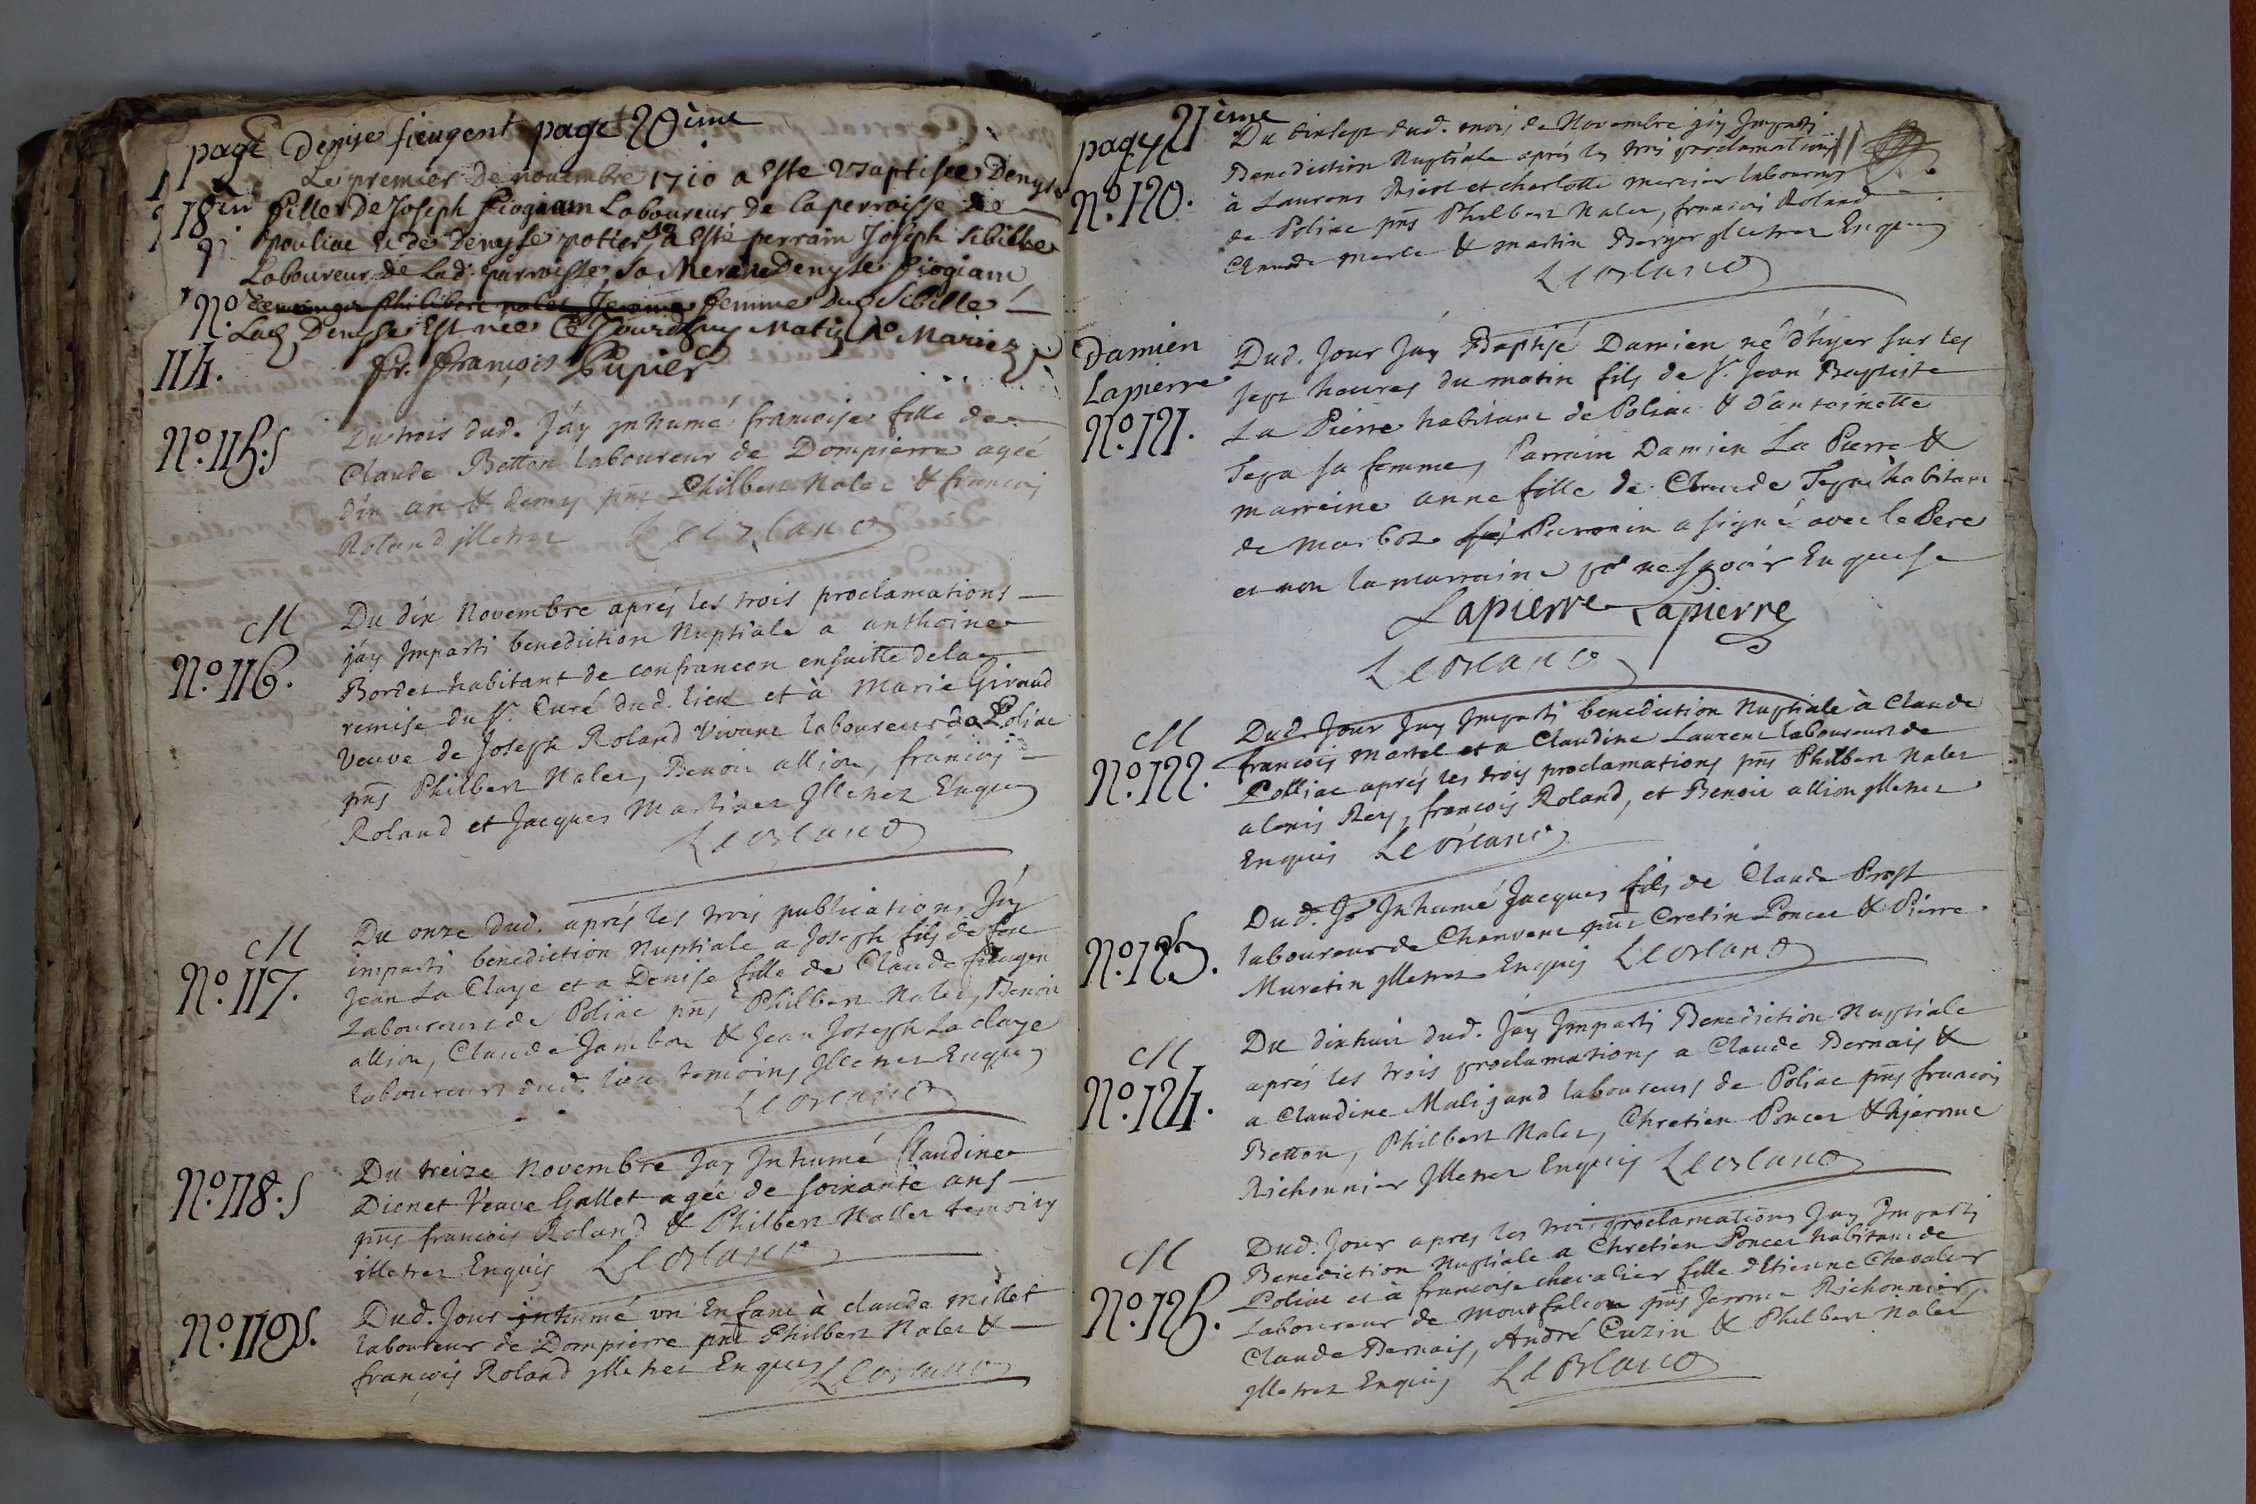 page Denise fieugent page 20ème
Le premier de novembre 1710 a este Baptisée Denyse
fille de Joseph fiogiam Laboureur de la perroisse de
pouliac et de Denyse potier, a esté perrain Joseph Sibille
Laboureur de lad. parroisse, sa Meraine Denyse fiogiam
femme dud. Sibille
Lad. Denyse Est née Ce Jourdhuy Matin
fr. françois Pupier
18
No.
114.
No. 115. S
Du trois dud. Jáy Inhumé francoise fille de
Claude Betton laboureur de Dompierre ageé
d'un an & demy pnt Philbert Nalet & francois
Roland jlletrez Leblanc
M
No. 116.
Du dix Novembre aprés les trois proclamations
jáy Imparti benediction Nuptiale a anthoine
Bordet habitant de confrancon ensuitte de la
remise du Sr. Curé dud. lieu et à Marie Giraud
Veuve de Joseph Roland Vivant laboureur de Poliac
pnts Philbert Nalet, Benoit allion, francois
Roland et Jacques Martinet Jlletrez Enquis
Leblanc
M
No. 117.
Du onze dud. aprés les trois publications Jáy
imparti benediction Nuptiale a Joseph fils de feu
Jean La Claye et a Denise fille de Claude fieugen
Laboureurs de Poliac pnts Philbert Nalet, Benoit
allion, Claude Jambon & Jean Joseph La claye
laboureurs dud. lieu temoins Jlletrez Enquis
Leblanc
No. 118. S
Du treize Novembre Jay Inhumé Claudine
Dienet Veuve Gallet agée de soixante ans
pnts francois Roland & Philbert Nallet temoins
illetrez Enquis Leblanc
No. 119 S.
Dud. Jour inhumé un Enfant à claude millet
laboureur de Dompierre pnt Philbert Nalet &
françois Roland jlletrez Enquis Leblanc
page 21ème
No. 120.
Du dixsept dud. mois de Novembre jáy Imparti
Benediction Nuptiale aprés les trois proclamations
à Laurent et charlotte mercier laboureurs
de Poliac pnts Philbert Nalet, francois Roland
Claude merle & martin Berger jlletrez Enquis
Leblanc
Damien
Lapierre
No. 121.
Dud. Jour Jáy Baptisé Damien né d'hyer sur les
sept heures du matin fils de Sr. Jean Baptiste
La Pierre habitant de Poliac & d'antoinette
Teya sa femme, Parrain Damien La Pierre &
marraine anne fille de Claude Teya habitant
de Marboz Le Parrain a signé avec le Pere
et non la marraine pr ne sçavoir Enquise
Lapierre Lapierre
Leblanc
M
No. 122.
Dud. Jour Jay Imparti benediction Nuptiale à Claude
francois Martel et a Claudine Laurent laboureurs de
Polliac aprés les trois proclamations pnts Philbert Nalet
alexis Rey, francois Roland, et Benoit allion jlletrez
Enquis Leblanc
No. 123.
Dud. Jr Inhumé Jacques fils de Claude Prost
laboureur de Chanvent pnts Cretin Poncet & Pierre
Muretin jlletrez Enquis Leblanc
M
No. 124.
Du dixhuit dud. Jáy Imparti Benediction Nuptiale
aprés les trois proclamations a Claude Bernais &
a Claudine Maligand laboureurs de Poliac pnts francois
Betton, Philbert Nalet, Chretien Poncet & hjerome
Richonnier Jlletrez Enquis Leblanc
M
No. 125.
Dud. Jour apres les trois proclamations Jay Imparti
Benediction Nuptiale a Chretien Poncet habitant de
Poliac et à francoise chevalier fille dEtienne Chevalier
Laboureur de Montfalcon pnts Jerome Richonnier,
Claude Bernais, André Cuzin & Philbert Nalet
jlletrez Enquis Leblanc